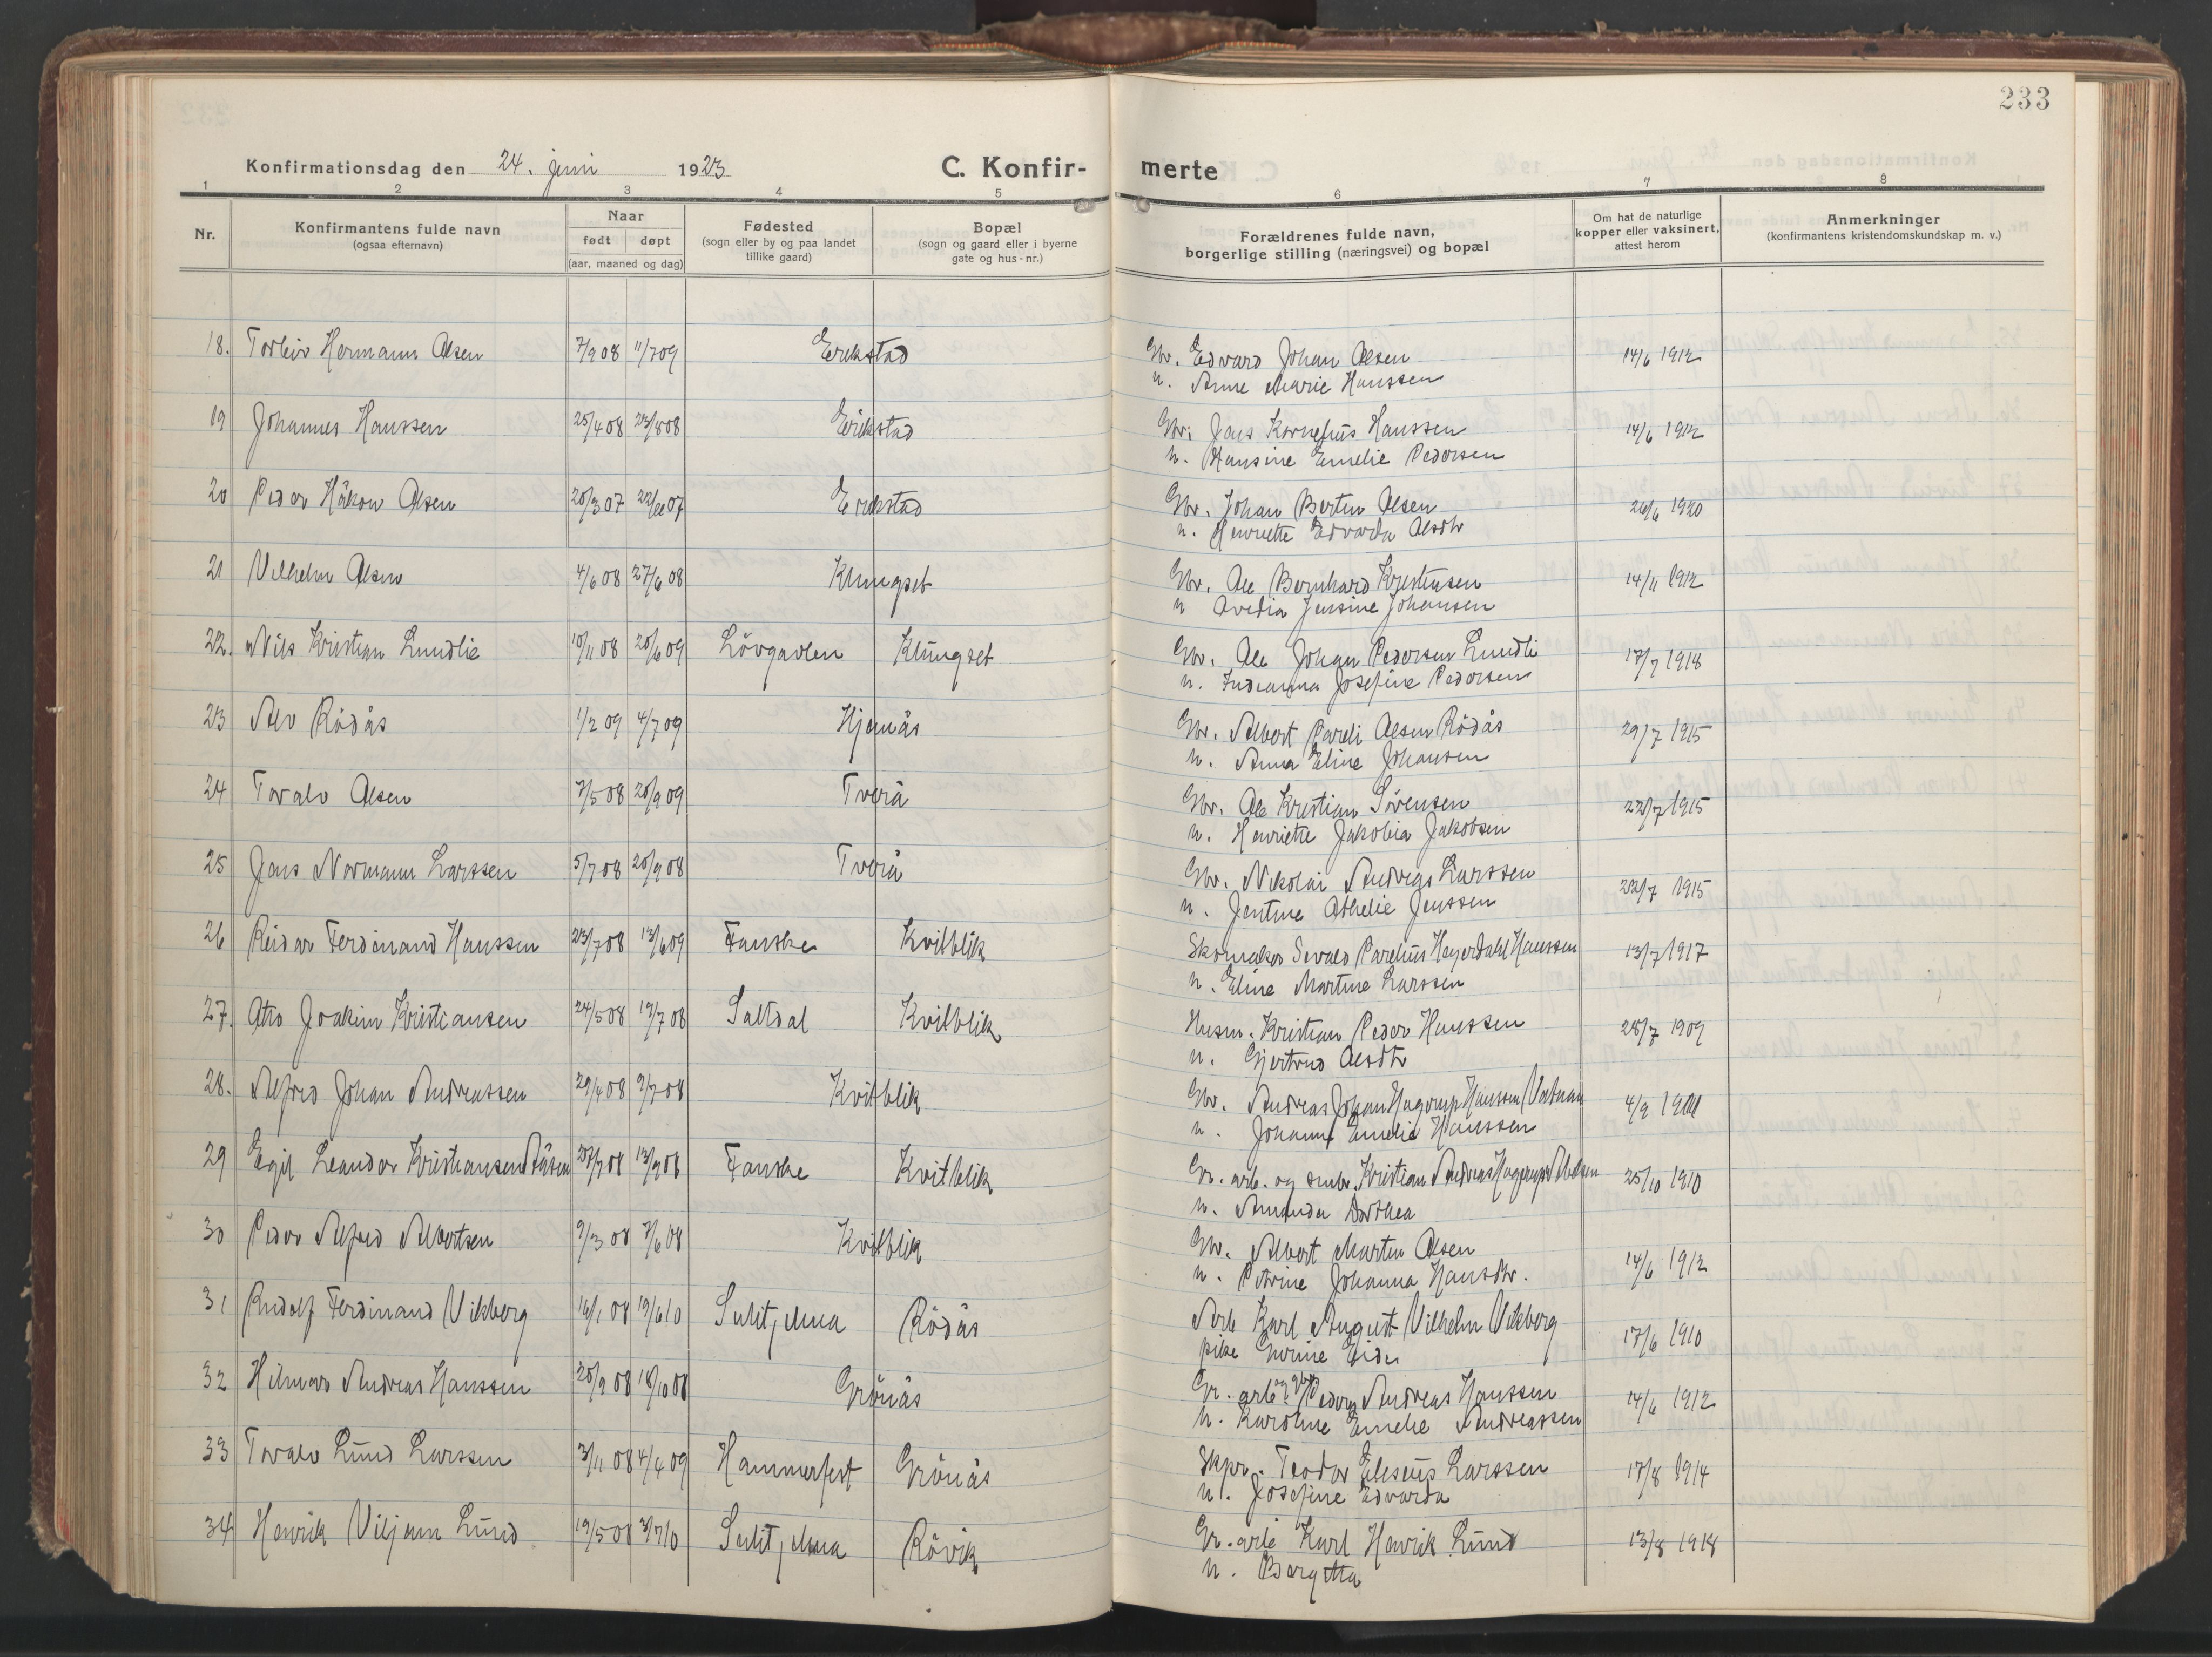 233
Konfirmationsdag den 24. juni 1923
C. Konfir-
merte
1 2 3 4 5 6 7 8
Nr.
Konfirmantens fulde navn
(ogsaa efternavn)
Naar
født døpt
(aar, maaned og dag)
Fødested
(sogn eller by og paa landet
tillike gaard)
Bopæl
(sogn og gaard eller i byerne
gate og hus-nr.)
Forældrenes fulde navn,
borgerlige stilling (næringsvei) og bopæl
Om hat de naturlige
kopper eller vaksinert,
attest herom
Anmerkninger
(konfirmantens kristendomskundskap m. v.)
18. Torleiv Hermann Olsen 7/9 08 11/7 09 Erikstad Gbr. Edvard Johan Olsen 14/6 1912
n. Anne Marie Hanssen
19 Johannes Hanssen 25/4 08 23/5 08 Erikstad Gbr. Jens Kornelius Hanssen 14/6 1912
n. Hansine Emelie Pedersen
20 Peder Håkon Olsen 20/3 07 07 Erikstad Gbr. Johan Bertin Olsen 26/6 1920
n. Henriette Edvarda Olsdtr
21 Vilhelm Olsen 4/6 08 27/6 08 Klungset Gbr. Ole Bernhard Kristensen 14/11 1912
n Ovedia Jensine Johansen
22. Nils Kristian Lundlie 10/11 08 20/6 09 Lövgavlen Klungset Gbr. Ole Johan Pedersen Lundli 17/7 1918
n. Indianna Josefine Pedersen
23 Alv Rödås 1/2 09 4/7 09 Hjemås Gbr. Albert Pareli Olsen Rödås 29/7 1915
n. Anna Eline Johansen
24 Toralv Olsen 7/5 08 20/9 09 Tverå Gbr. Ole Kristian Sörensen 22/7 1915
n. Henriette Jakobia Jakobsen
25 Jens Normann Larssen 5/7 08 20/9 08 Tverå Gbr. Nikolai Andreas Larssen 22/7 1915
n. Jentine Othelie Jenssen
26 Reidar Ferdinand Hanssen 23/7 08 13/6 09 Fauske Kvitblik Skomaker Sevald Parelius Heyerdahl Hanssen 13/7 1917
n. Eline Martine Larssen
27. Otto Joakim Kristiansen 24/5 08 19/7 08 Saltdal Kvitblik Husm. Kristian Peder Hanssen 28/7 1909
n. Gjertrud Olsdtr
28. Alfred Johan Andreassen 29/4 08 9/7 08 Kvitblik Gbr. Andreas Johan Hagerup Hanssen 4/9
n. Johanna Emelie Hanssen
29 Egil Leander Kristiansen 27/7 08 13/9 08 Fauske Kvitblik Gr. arb. og Kristian Andreas Hagerup 25/10 1910
n. Amanda Dorthea
30 Peder Alfred Albertsen 9/3 08 7/6 08 Kvitblik Gbr. Albert Martin Olsen 14/6 1912
n. Petrine Johanna Hansdtr.
31 Rudolf Ferdinand Vikberg 16/1 08 19/6 10 Sulitjelma Rödås Arb Karl August Vilhelm Vikberg 17/6 1910
pike
32 Hilmar Andreas Hanssen 20/9 08 18/10 08 Grönås Gr. arb. og gbr. Peder Andreas Hanssen 14/6 1912
n. Karoline Emelie Andreassen
33 Toralv Lund Larssen 3/11 08 4/4 09 Hammerfest Grönås Skpr. Teodor Eliseus Larssen 17/8 1914
n. Josefine Edvarda
34 Henrik Viljam Lund 19/5 08 3/7 10 Sulitjelma Rövik Gr. arb Karl Henrik Lund 13/8 1918
n. Bergitta